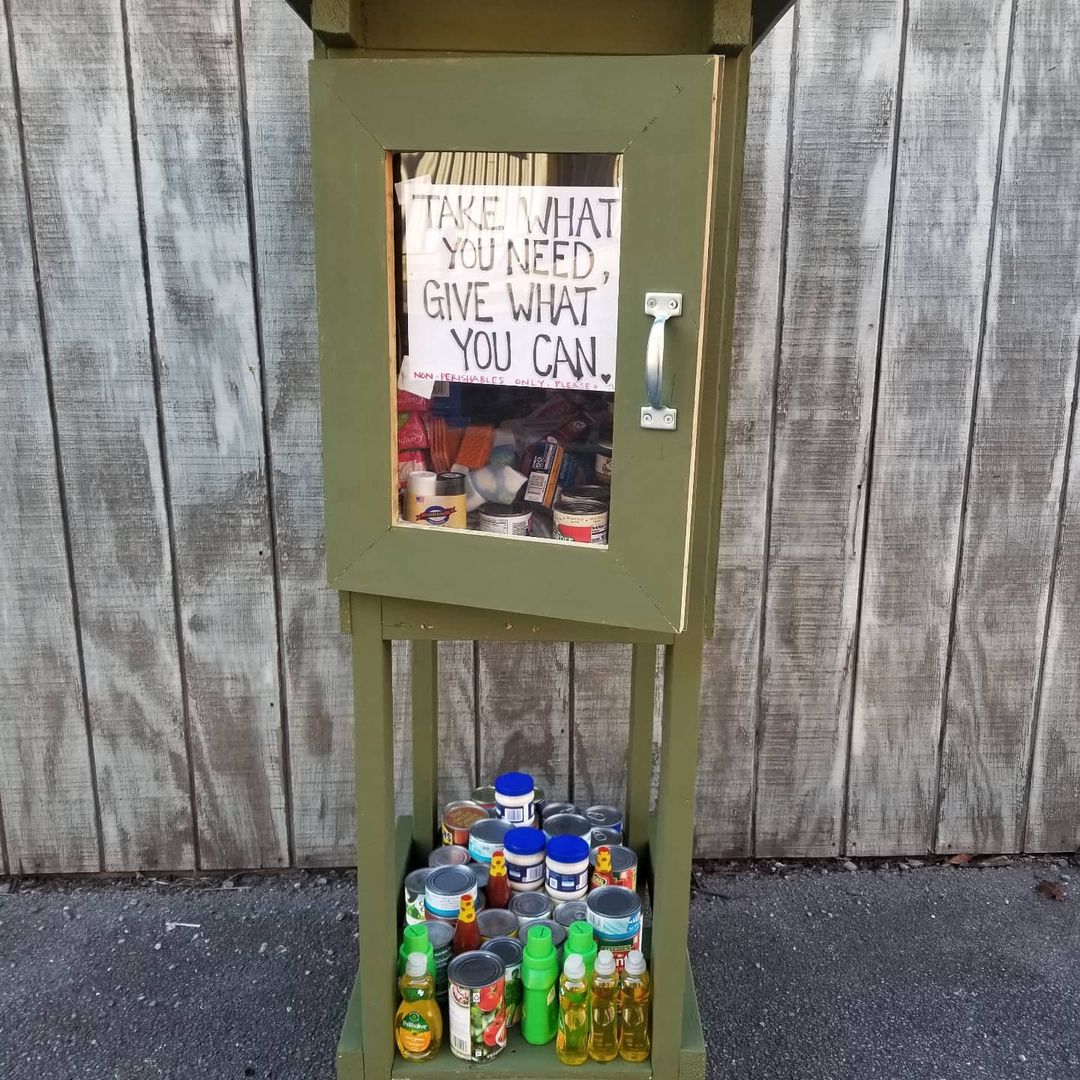 TAKE WHAT
YOU NEED,
GIVE WHAT
YOU CAN.
NON-PERISHABLES ONLY, PLEASE
Palmolive